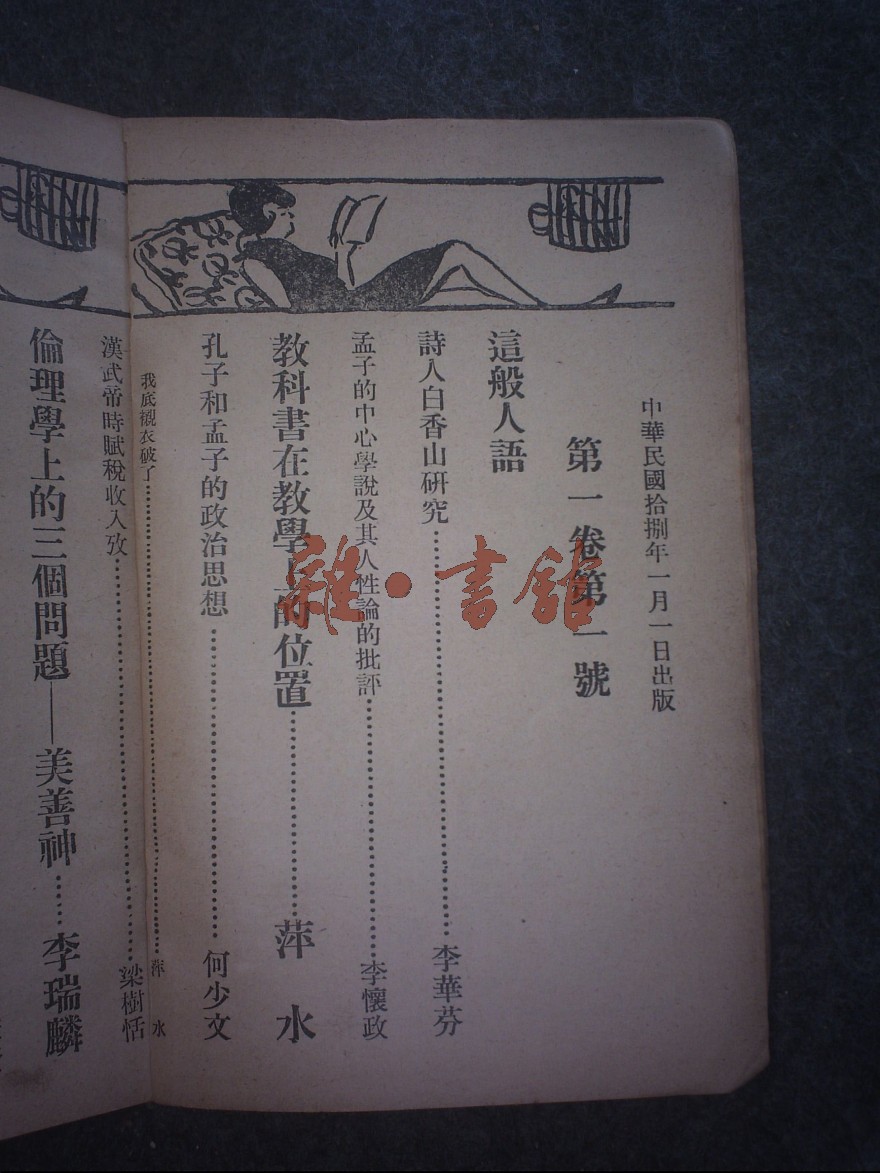 中華民國拾捌年一月一日出版
第一卷第一號
這般人語
詩人白香山研究……李華芬
孟子的中心學說及其人性論的批評……李懷政
教科書在教學上的位置……萍水
孔子和孟子的政治思想……何少文
我底襯衣破了……萍水
漢武帝時賦稅收入攷……梁樹恬
倫理學上的三個問題——美善神……李瑞麟
雜·書館